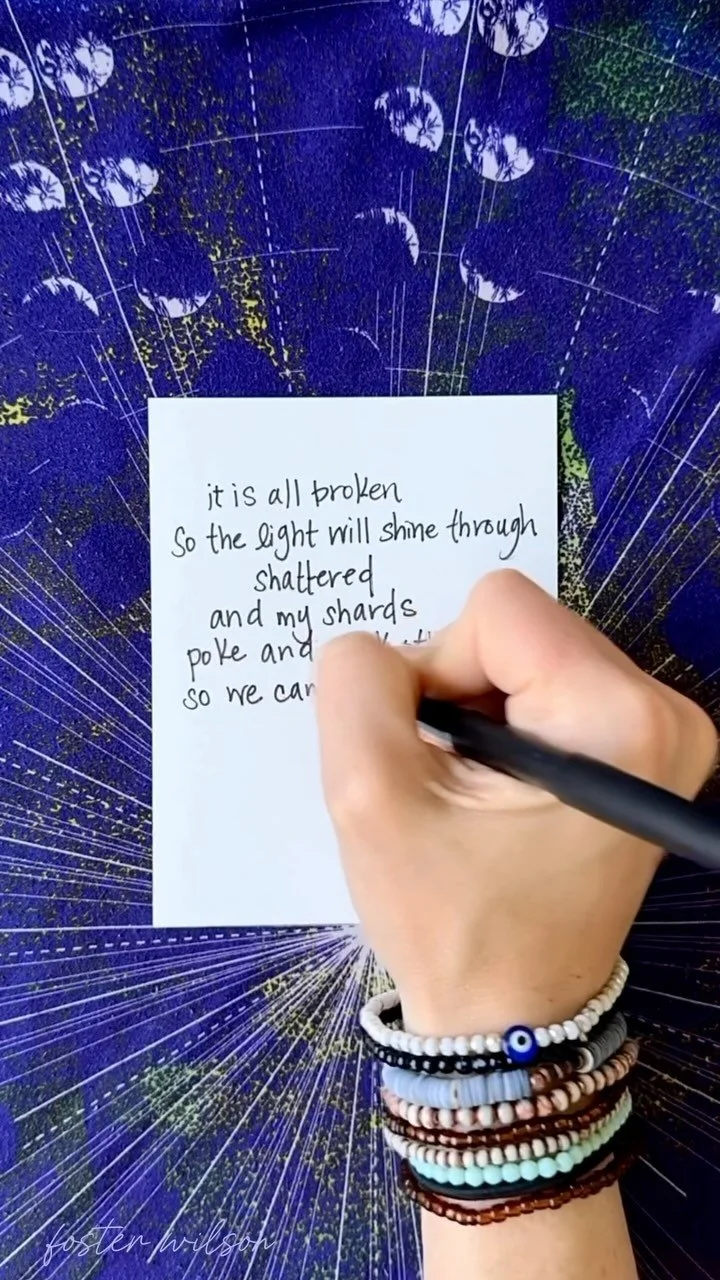 it is all broken
so the light will shine through
shattered
and my shards
poke and
so we can
foster wilson